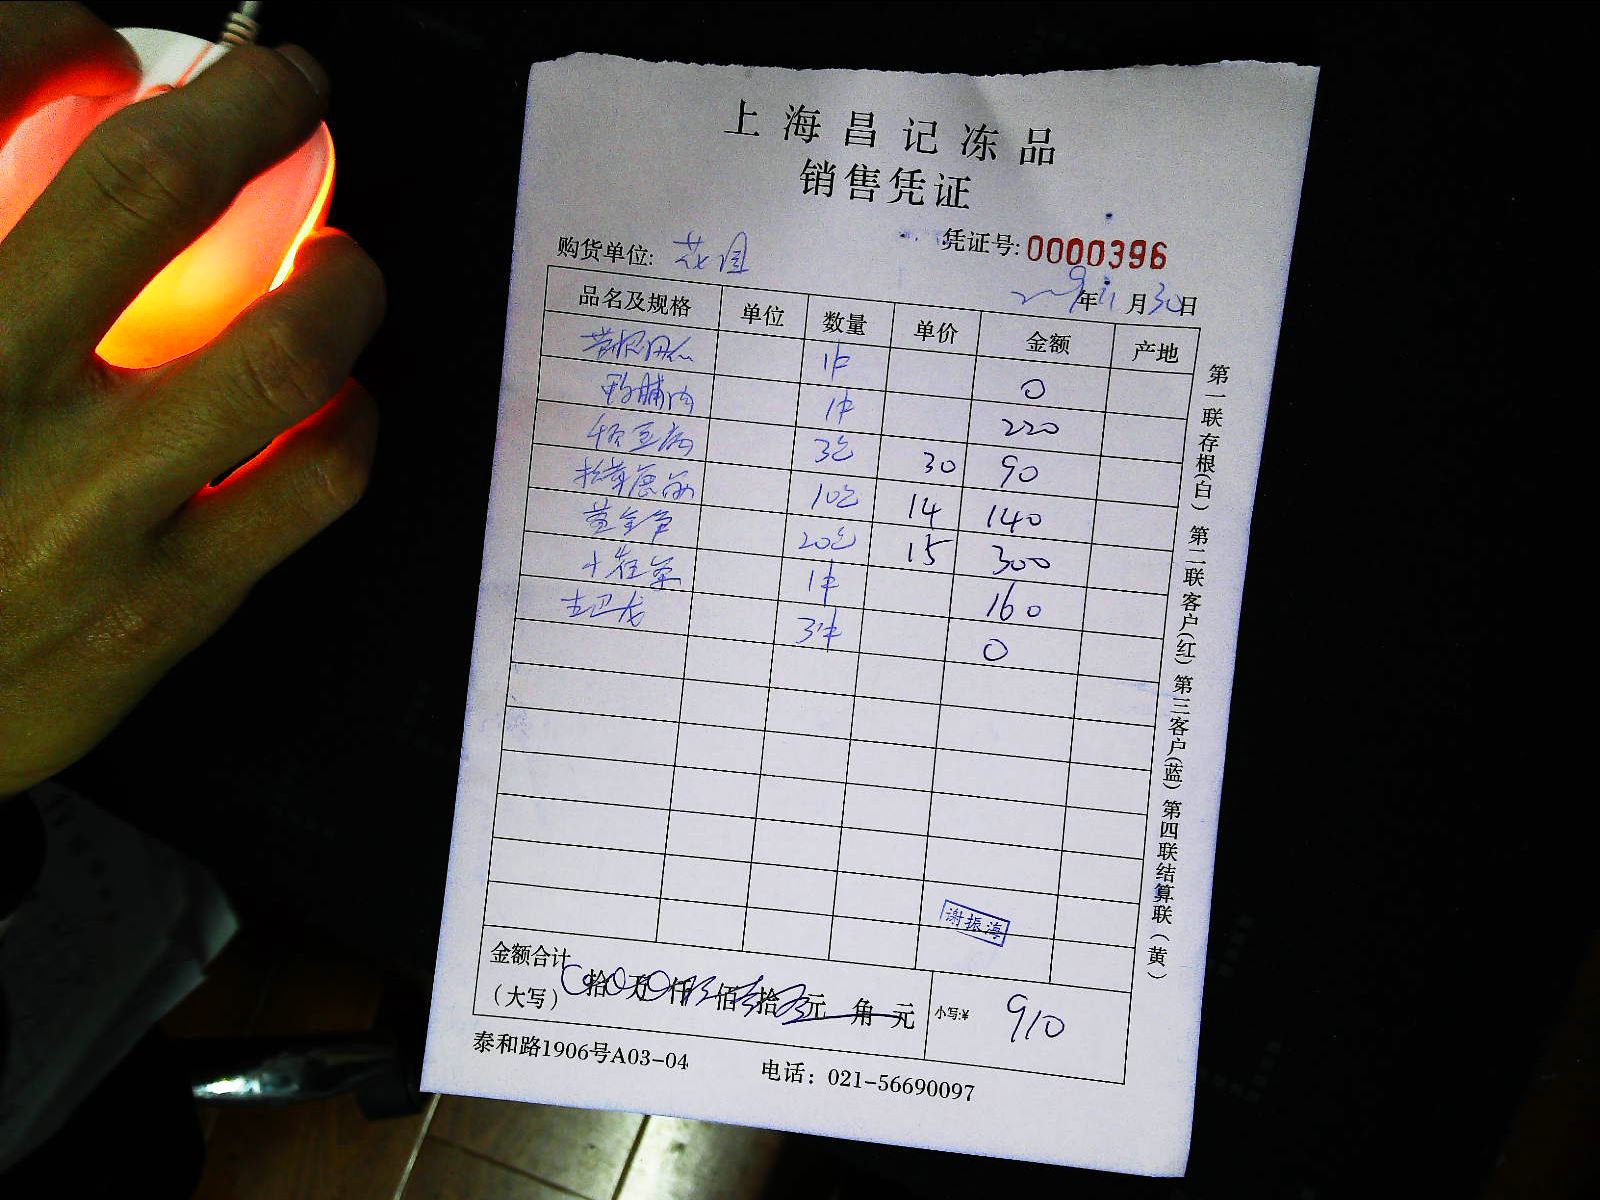 上海昌记冻品
销售凭证
凭证号: 0000396
购货单位: 花园
2009年11月30日
品名及规格 单位 数量 单价 金额 产地
1件 0
鸭脯肉 1件 220
千页豆腐 3包 30 90
10包 14 140
黄金 20包 15 300
1件 160
3件 0
谢振海
金额合计
(大写) 拾 万 仟 佰 拾 元 角 元 小写:¥ 910
泰和路1906号A03-04 电话: 021-56690097
第一联存根(白) 第二联客户(红) 第三客户(蓝) 第四联结算联(黄)